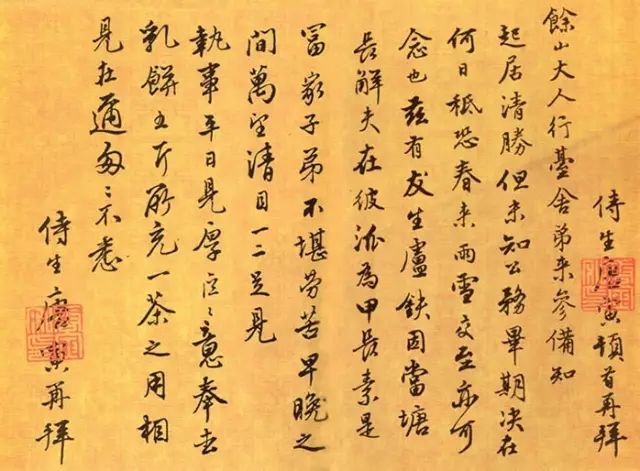 侍生唐寅頓首再拜
餘山大人行臺舍弟来參備知
起居清勝但未知公務畢期决在
何日秪恐春来雨雪交至亦可
念也茲有友生盧鈇因當塘
長解夫在彼派為甲長素是
富家子弟不堪勞苦早晚之
間萬望清目一二足見
執事平日見厚之意奉去
乳餅五斤所充一茶之用相
見在邇匆匆不悉
侍生唐寅再拜